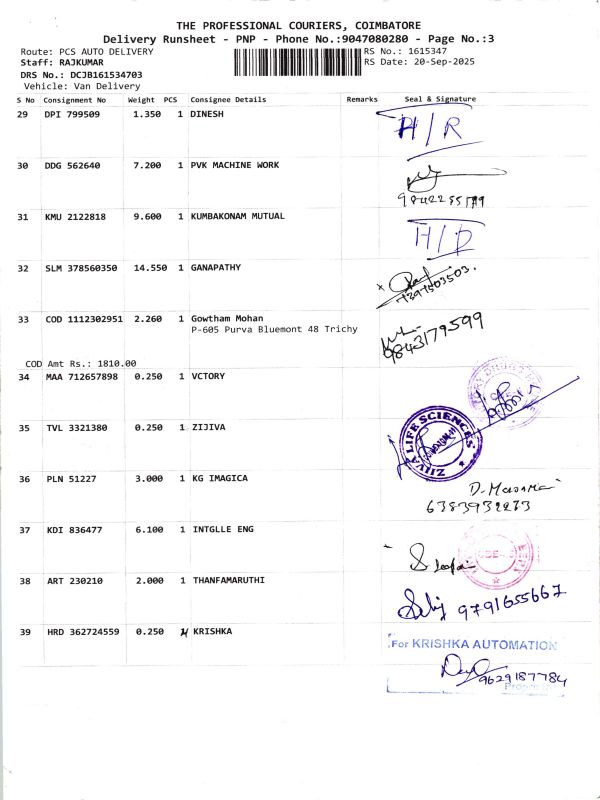 THE PROFESSIONAL COURIERS, COIMBATORE
Delivery Runsheet - PNP - Phone No.:9047080280 - Page No.:3
Route: PCS AUTO DELIVERY RS No.: 1615347
Staff: RAJKUMAR RS Date: 20-Sep-2025
DRS No.: DCJB161534703
Vehicle: Van Delivery
S No Consignment No Weight PCS Consignee Details Remarks Seal & Signature
29 DPI 799509 1.350 1 DINESH H/R
30 DDG 562640 7.200 1 PVK MACHINE WORK
31 KMU 2122818 9.600 1 KUMBAKONAM MUTUAL
32 SLM 378560350 14.550 1 GANAPATHY
7397503503.
33 COD 1112302951 2.260 1 Gowtham Mohan
P-605 Purva Bluemont 48 Trichy
9843179599
COD Amt Rs.: 1810.00
34 MAA 712657898 0.250 1 VCTORY
35 TVL 3321380 0.250 1 ZIJIVA
LIFE SCIENCES
36 PLN 51227 3.000 1 KG IMAGICA
37 KDI 836477 6.100 1 INTGLLE ENG
38 ART 230210 2.000 1 THANFAMARUTHI
9791655667
39 HRD 362724559 0.250 KRISHKA
For KRISHKA AUTOMATION
9629187784